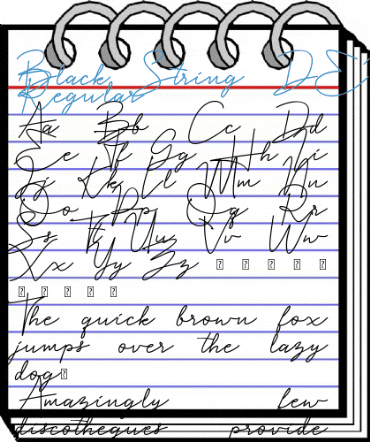 Black String DE
Regular
Aa Bb Cc Dd
Ee Ff Gg Hh Ii
Jj Kk Ll Mm Nn
Oo Pp Qq Rr
Ss Tt Uu Vv Ww
Xx Yy Zz
The quick brown fox
jumps over the lazy
dog
Amazingly few
discotheques provide